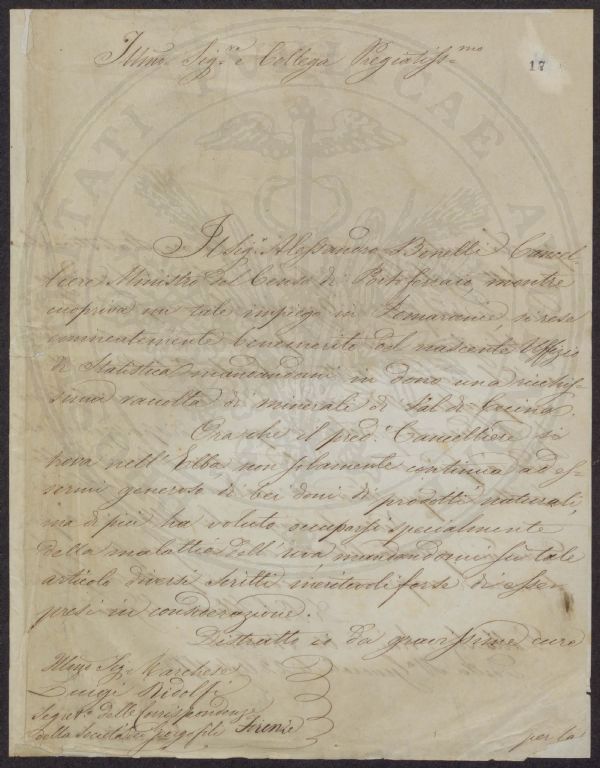 Illmo. Sig.re e Collega Pregiatiss.mo
17
Il Sig.r Alessandro Bonelli Cancel-
liere Ministro del Censo di Portoferraio, mentre
cuopriva un tale impiego in Pomarance, si rese
eminentemente benemerito del nascente Uffizio
di Statistica mandandomi in dono una ricchis-
sima raccolta di minerali di Val di Cecina.
Ora che il pred.o Cancelliere si
trova nell'Elba non solamente continua ad es-
sermi generoso di bei doni di prodotti naturali,
ma di più ha voluto occuparsi specialmente
della malattia dell'uva, mandandomi su tale
articolo diversi scritti meritevoli forse di esser
presi in considerazione.
Distratto io da gravissime cure
Illmo Sig. Marchese
Luigi Ridolfi
Segret.o delle Corrispondenze
della Società dei Georgofili Firenze
per la